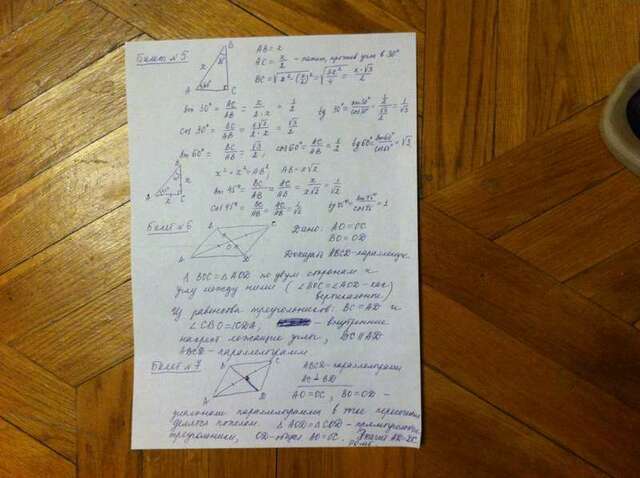 Билет №5
AB = x
AC = x/2 – катет, против угла в 30°
BC = √(x² - (x/2)²) = √(3x²/4) = x·√3/2
sin 30° = AC/AB = x/2·x = 1/2
tg 30° = sin30°/cos30° = 1/2 / √3/2 = 1/√3
cos 30° = BC/AB = x√3/2·x = √3/2
sin 60° = BC/AB = √3/2; cos 60° = AC/AB = 1/2 tg 60° = sin60°/cos60° = √3
x² + x² = AB²; AB = x√2
sin 45° = BC/AB = AC/AB = x/x√2 = 1/√2
cos 45° = BC/AB = AC/AB = 1/√2 tg 45° = sin45°/cos45° = 1
Билет №6
Дано: AO = OC
BO = OD
Доказать: ABCD – параллелогр.
Δ BOC = Δ AOD по двум сторонам и
углу между ними (∠BOC = ∠AOD – как
вертикальные)
Из равенства треугольников: BC = AD и
∠CBO = ∠ODA, – внутренние
накрест лежащие углы, BC || AD
ABCD – параллелограмм
Билет №7
ABCD – параллелограмм
AC ⊥ BD
AO = OC, BO = OD –
диагонали параллелограмма в точке пересечения
делятся пополам. Δ AOD = Δ COD – прямоугольн.
треугольники, OD – общая AO = OC. Значит AD = DC
ромб